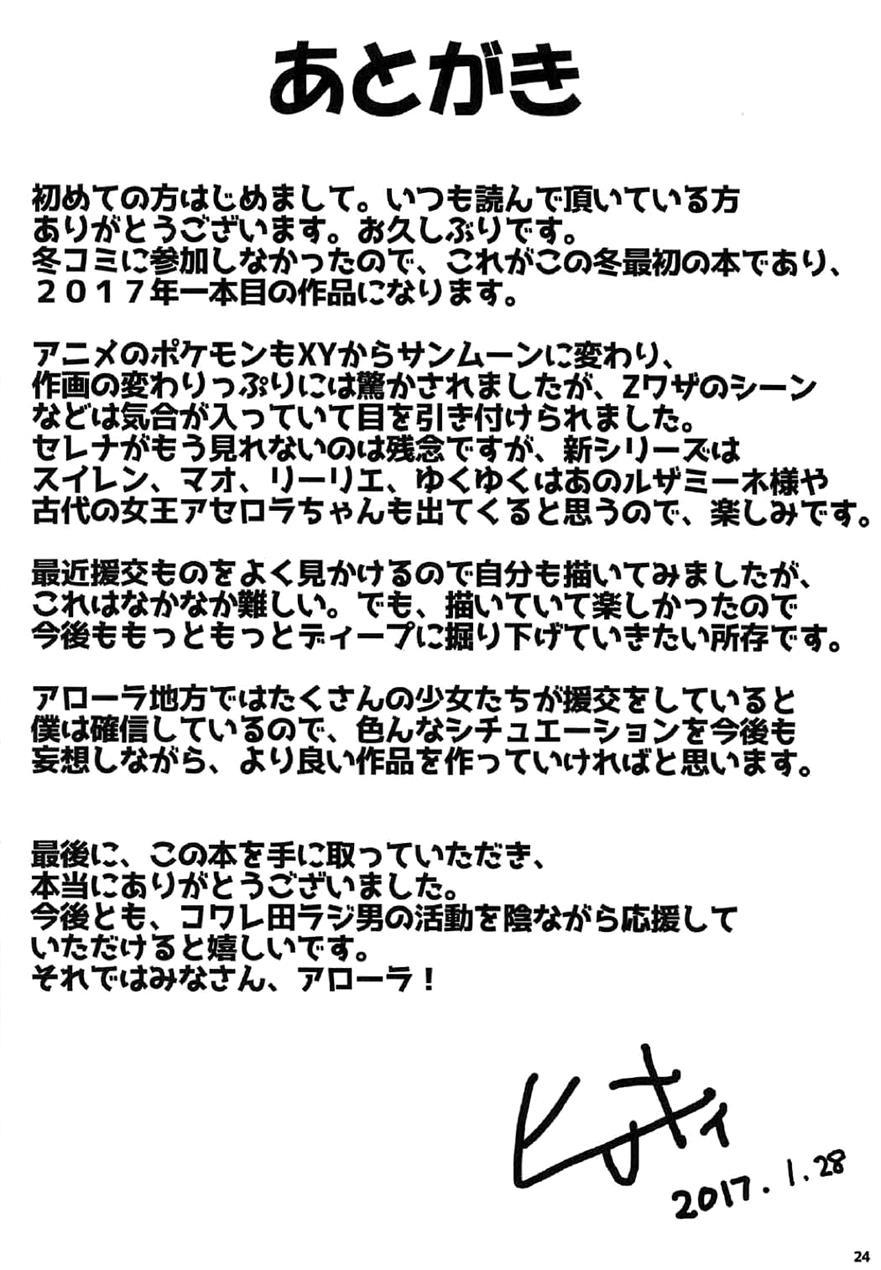 あとがき
初めての方はじめまして。いつも読んで頂いている方
ありがとうございます。お久しぶりです。
冬コミに参加しなかったので、これがこの冬最初の本であり、
２０１７年一本目の作品になります。
アニメのポケモンもXYからサンムーンに変わり、
作画の変わりっぷりには驚かされましたが、Zワザのシーン
などは気合が入っていて目を引き付けられました。
セレナがもう見れないのは残念ですが、新シリーズは
スイレン、マオ、リーリエ、ゆくゆくはあのルザミーネ様や
古代の女王アセロラちゃんも出てくると思うので、楽しみです。
最近援交ものをよく見かけるので自分も描いてみましたが、
これはなかなか難しい。でも、描いていて楽しかったので
今後ももっともっとディープに掘り下げていきたい所存です。
アローラ地方ではたくさんの少女たちが援交をしていると
僕は確信しているので、色んなシチュエーションを今後も
妄想しながら、より良い作品を作っていければと思います。
最後に、この本を手に取っていただき、
本当にありがとうございました。
今後とも、コワレ田ラジ男の活動を陰ながら応援して
いただけると嬉しいです。
それではみなさん、アローラ！
2017.1.28
24